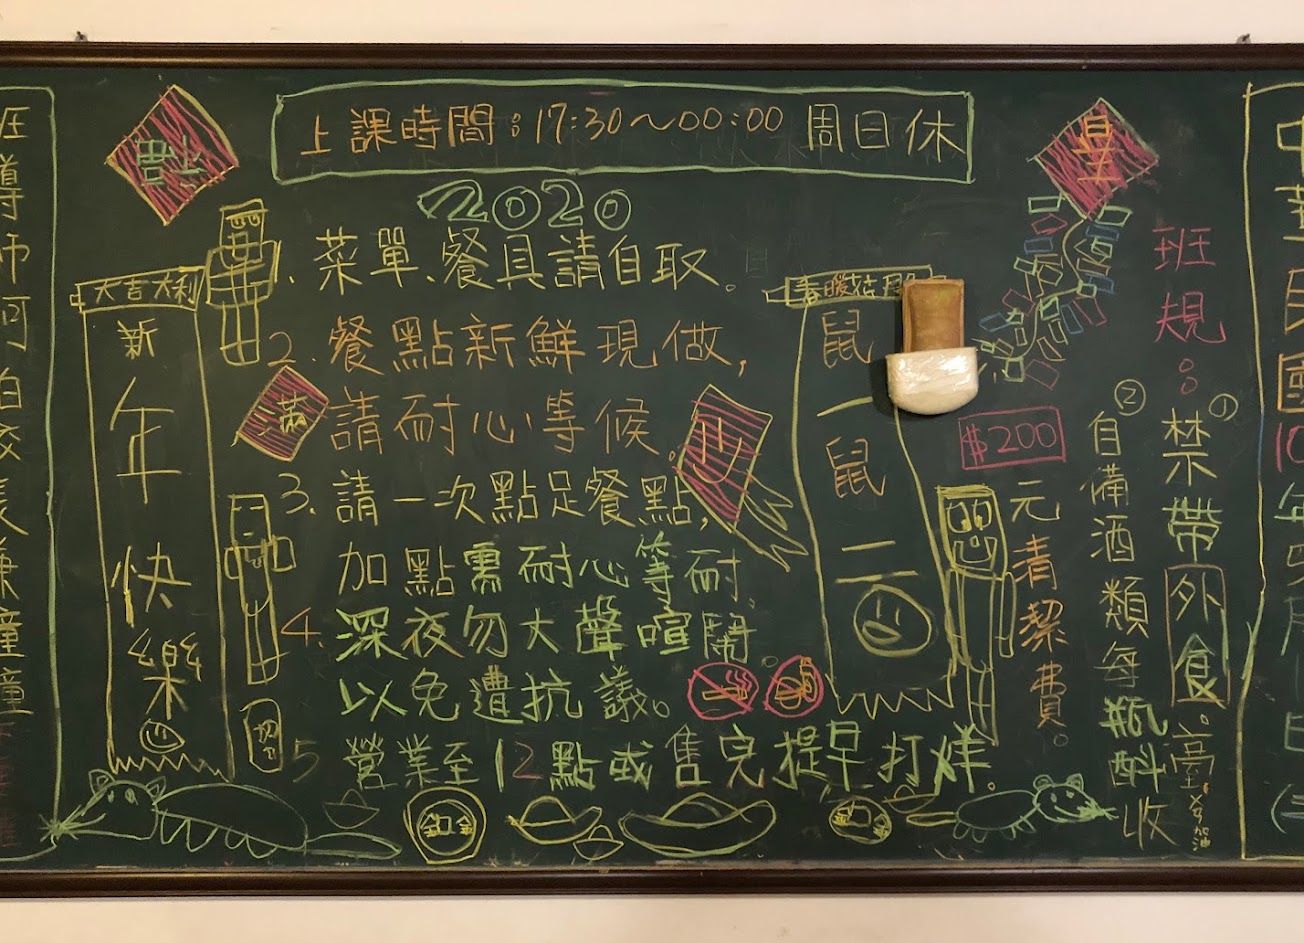 上課時間:17:30~00:00 周日休
2020
1.菜單、餐具請自取。
2.餐點新鮮現做,
請耐心等候。
3.請一次點足餐點,
加點需耐心等耐.
4.深夜勿大聲喧鬧
以免遭抗議。
5 營業至12點或售完提早打烊
大吉大利
新年快樂
滿
春暖花開
鼠一鼠二
班規:
①禁帶外食。
②自備酒類每瓶酌收
$200
元清潔費。
加油